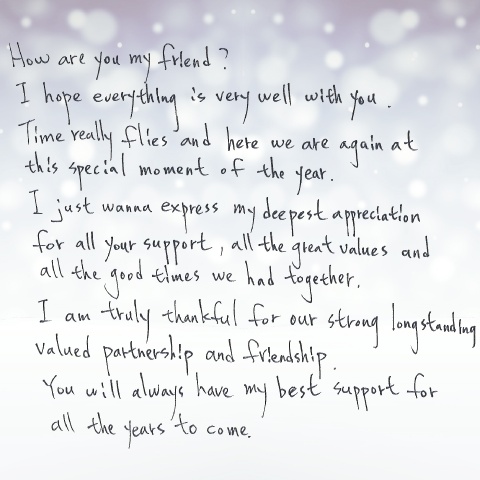 How are you my friend?
I hope everything is very well with you.
Time really flies and here we are again at
this special moment of the year.
I just wanna express my deepest appreciation
for all your support, all the great values and
all the good times we had together.
I am truly thankful for our strong longstanding
valued partnership and friendship.
You will always have my best support for
all the years to come.